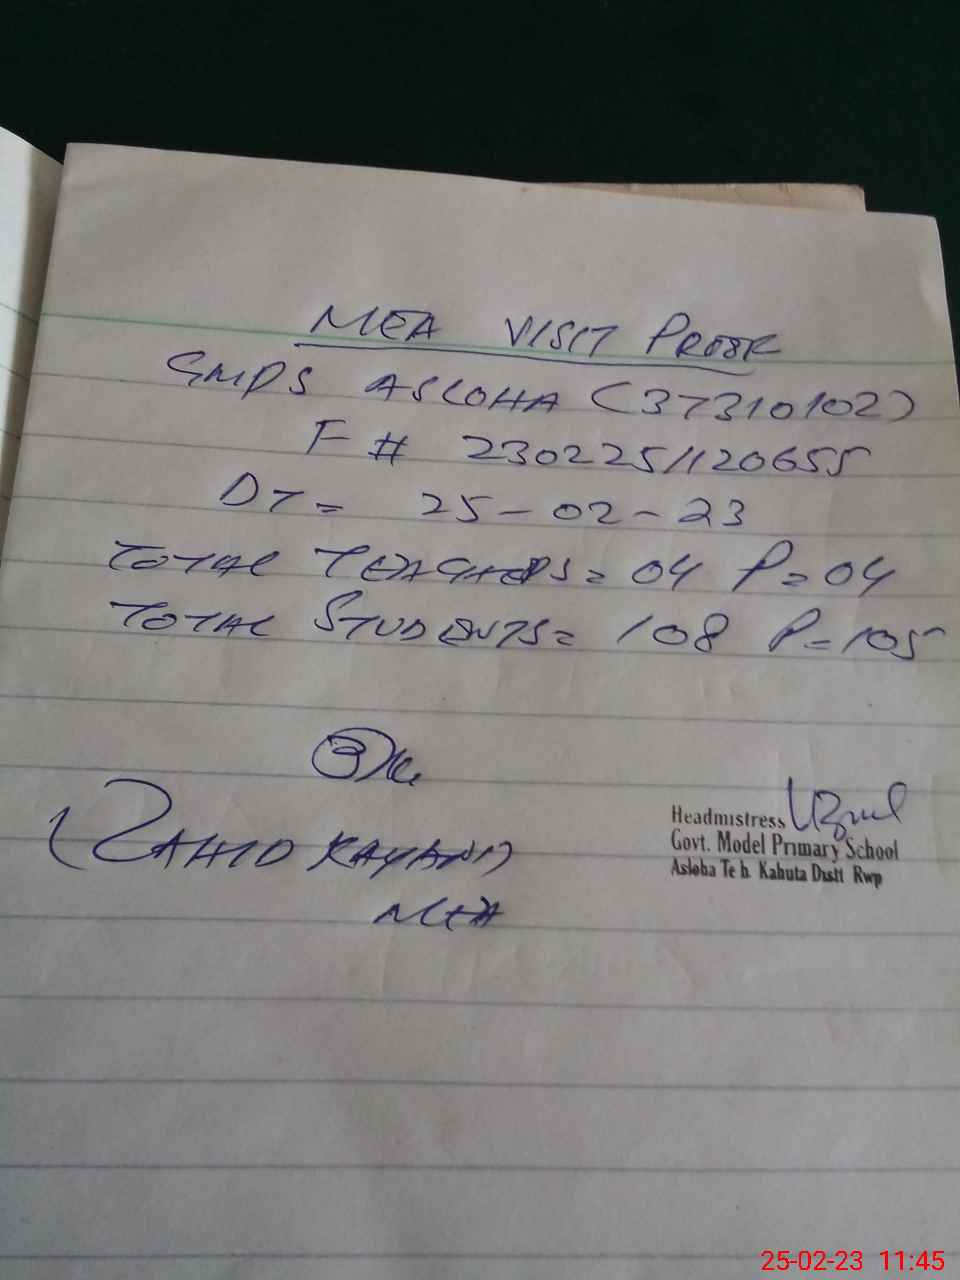 MEA VISIT PROOF
GMPS ASLOHA (37310102)
F # 2302251120655
DT = 25-02-23
TOTAL TEACHERS = 04 P = 04
TOTAL STUDENTS = 108 P = 105
(ZAHID KAYANI)
MEA
Headmistress
Govt. Model Primary School
Asloha Teh. Kahuta Distt Rwp
25-02-23 11:45